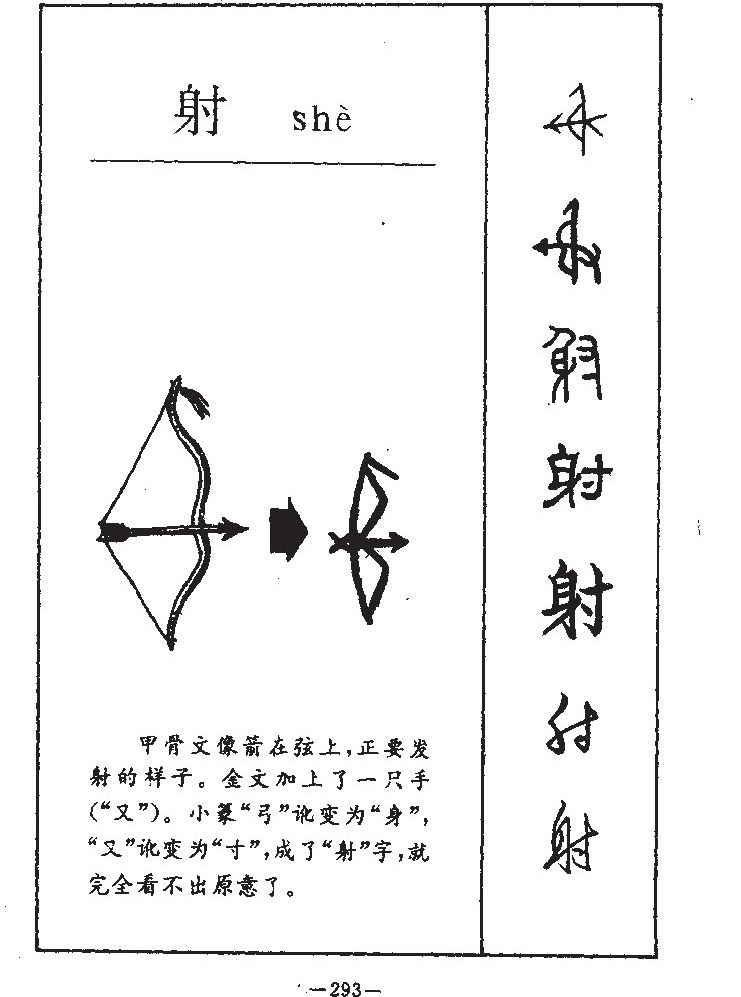 射 shè
甲骨文像箭在弦上，正要发
射的样子。金文加上了一只手
（“又”）。小篆“弓”讹变为“身”，
“又”讹变为“寸”，成了“射”字，就
完全看不出原意了。
射
射
射
射
射
射
射
—293—